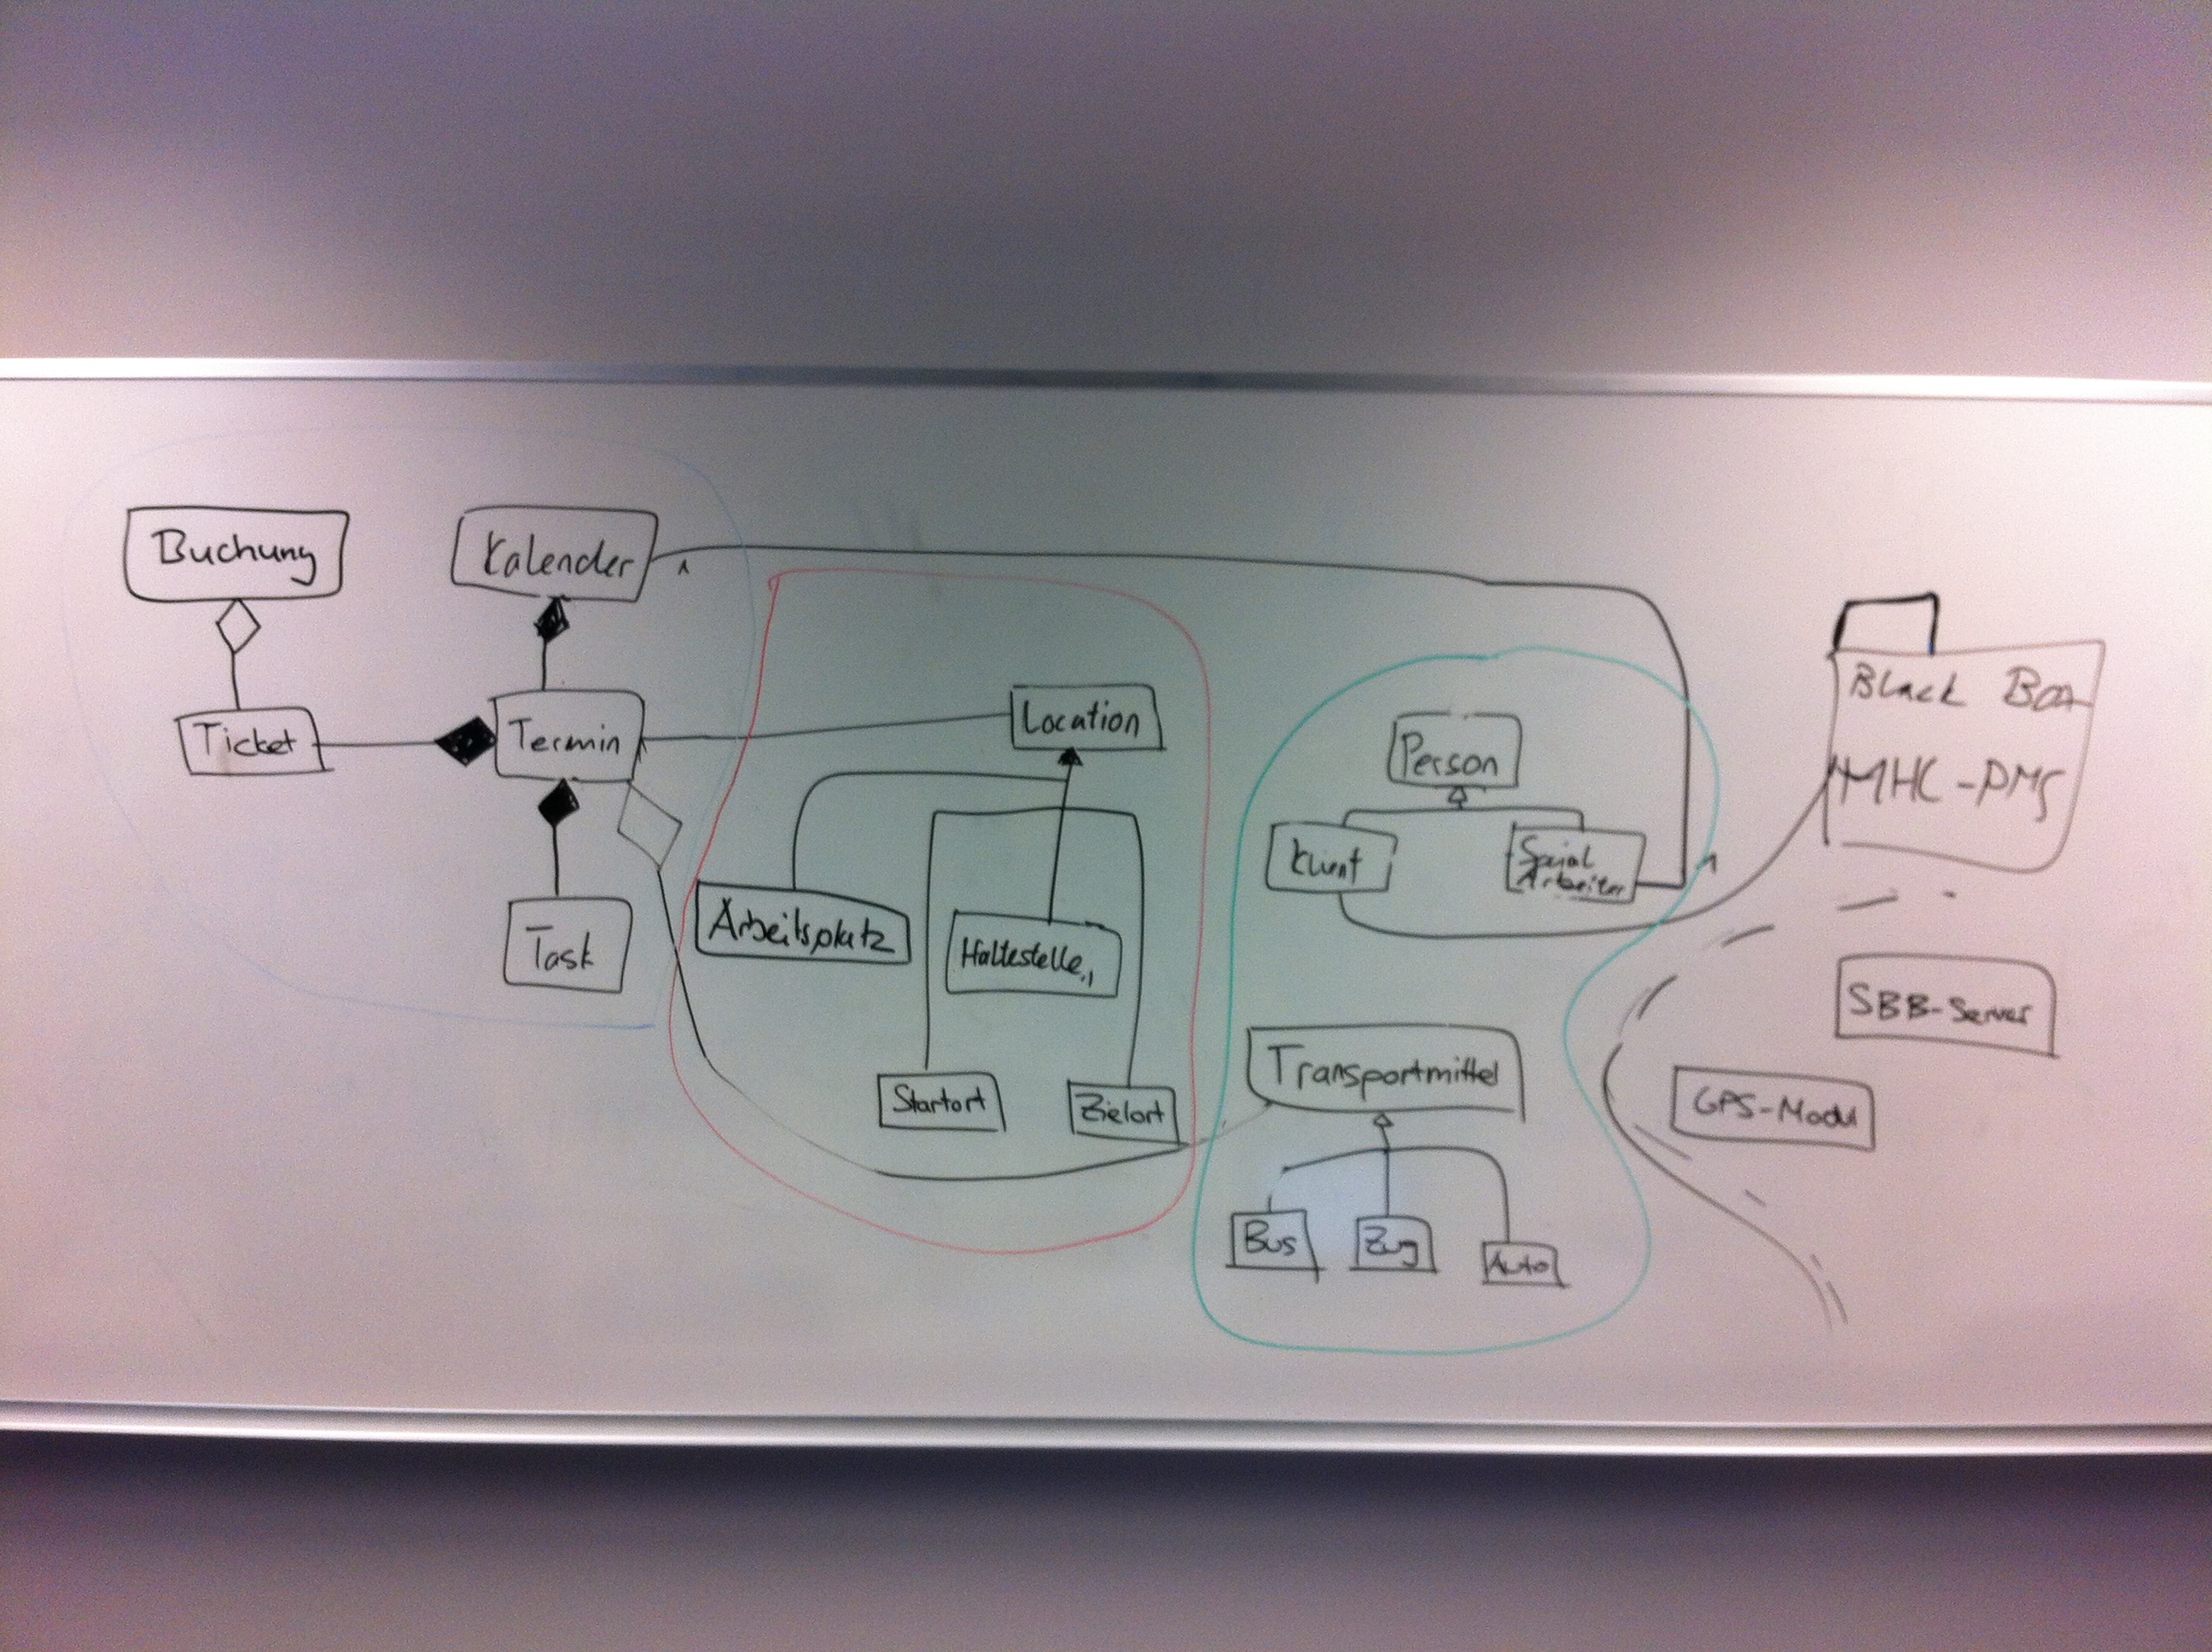 Buchung
Kalender
Ticket
Termin
Task
Location
Arbeitsplatz
Haltestelle
Startort
Zielort
Person
Klient
Sozial
Arbeiter
1
1
Transportmittel
Bus
Zug
Auto
Black Box
MHC-PMS
SBB-Server
GPS-Modul